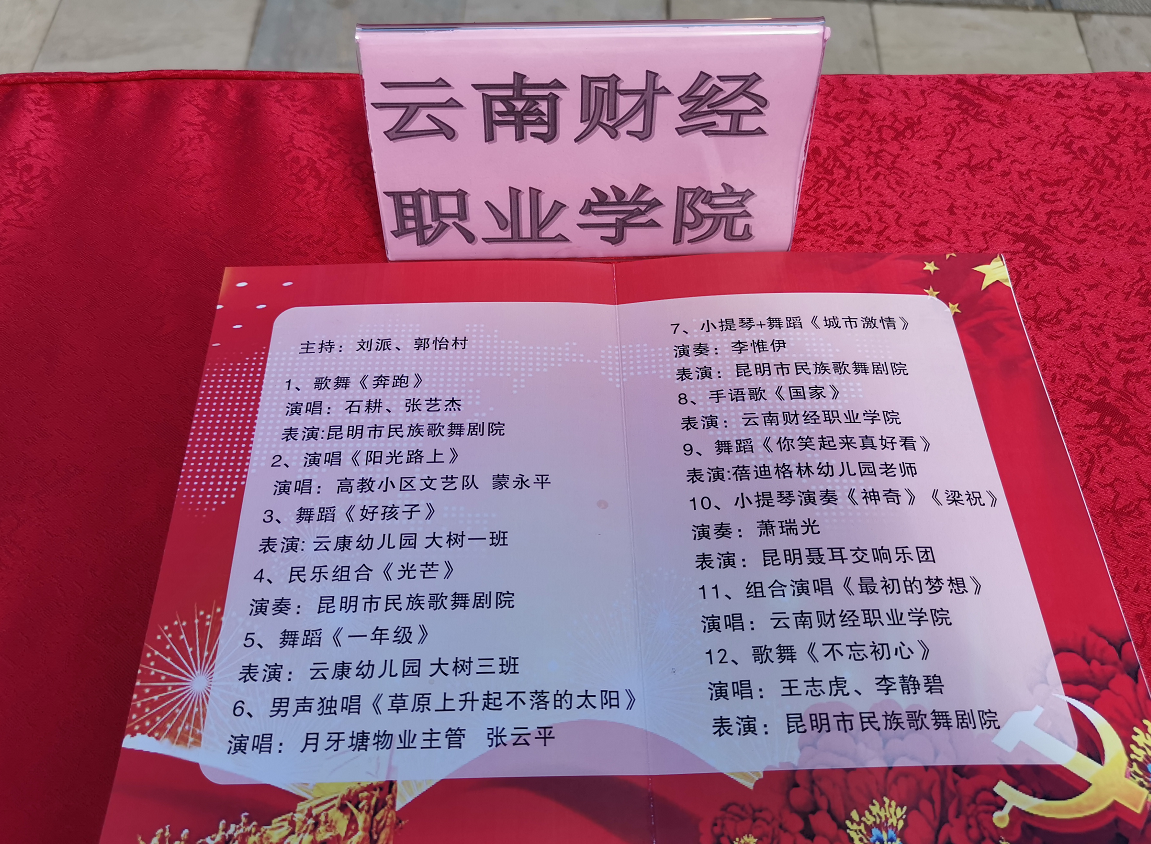 云南财经
职业学院
主持：刘派、郭怡村
1、歌舞《奔跑》
演唱：石耕、张艺杰
表演:昆明市民族歌舞剧院
2、演唱《阳光路上》
演唱：高教小区文艺队 蒙永平
3、舞蹈《好孩子》
表演: 云康幼儿园 大树一班
4、民乐组合《光芒》
演奏：昆明市民族歌舞剧院
5、舞蹈《一年级》
表演：云康幼儿园 大树三班
6、男声独唱《草原上升起不落的太阳》
演唱：月牙塘物业主管 张云平
7、小提琴+舞蹈《城市激情》
演奏：李惟伊
表演：昆明市民族歌舞剧院
8、手语歌《国家》
表演：云南财经职业学院
9、舞蹈《你笑起来真好看》
表演:蓓迪格林幼儿园老师
10、小提琴演奏《神奇》《梁祝》
演奏：萧瑞光
表演：昆明聂耳交响乐团
11、组合演唱《最初的梦想》
演唱：云南财经职业学院
12、歌舞《不忘初心》
演唱：王志虎、李静碧
表演：昆明市民族歌舞剧院